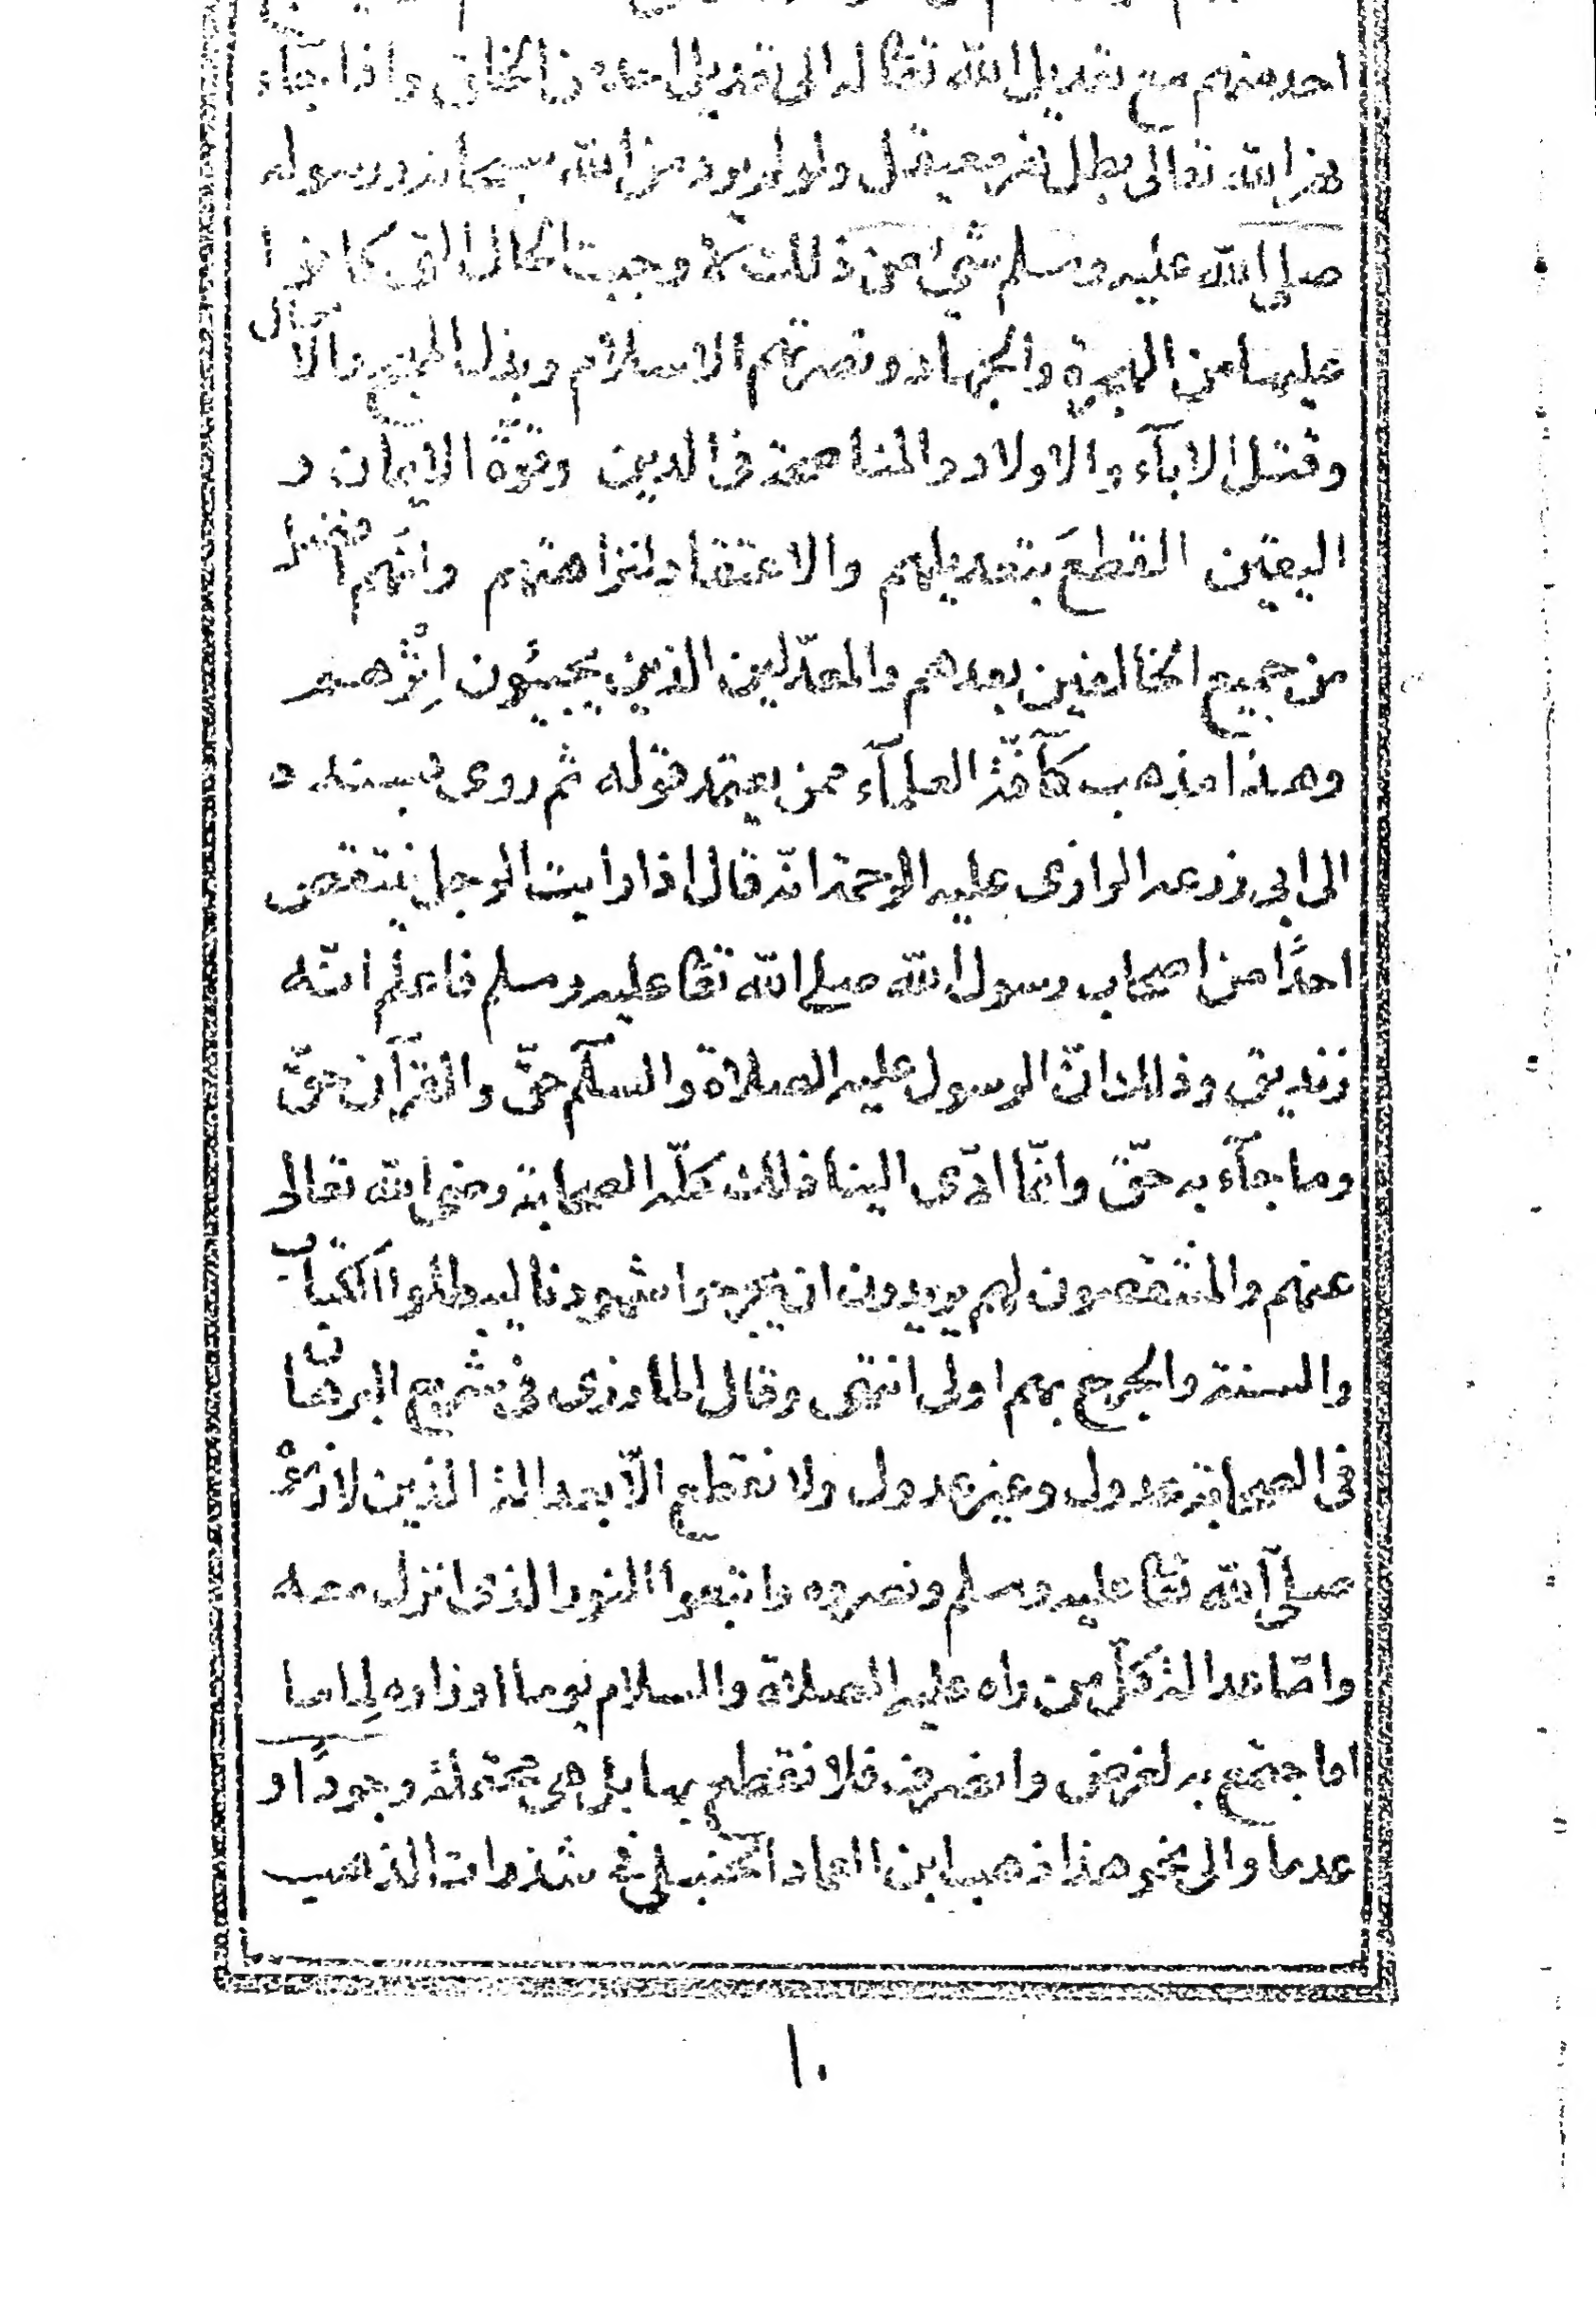 احد منهم مع تعديل الله تعا له الى تعديل احد من الخلق واذا جاء
الله تعالى بطل ولو لم يرد من الله سبحانه ورسوله
صلى الله عليه وسلم شئ من ذلك لاوجبت الحال التى كانوا
عليها من الهجرة والجهاد ونصرتهم الاسلام وبذل المهج والاموال
وقتل الابآء والاولاد والمناصحة فى الدين وقوة الايمان و
اليقين القطع بتعديلهم والاعتقاد لنزاهتهم وانهم افضل
من جميع الخالفين بعدهم والمعدّلين الذين يجيئون اثرهم
وهذا مذهب كآفة العلمآء ممن يعتمد قوله ثم روى بسنده
الى ابى زرعه الرازى عليه الرحمة انه قال اذا رايت الرجل ينتقص
احدًا من اصحاب رسول الله صلى الله تعا عليه وسلم فاعلم انّه
زنديق وذلك انّ الرسول عليه الصلاة والسلآم حقّ والقرآن حقّ
وما جآء به حقّ وانّما ادّى الينا ذلك كلّه الصحابة رضى الله تعالى
عنهم والمنتقصون لهم يريدون ان يجرحوا شهودنا ليبطلوا الكتاب
والسنة والجرح بهم اولى انتهى وقال المازرى فى شرح البرهان
فى الصحابة عدول وغير عدول ولا نقطع الّا بعدالة الذين لازموه
صلى الله تعا عليه وسلم ونصروه واتبعوا النور الذى انزل معه
وامّا عدالة كلّ من راه عليه الصلاة والسلام يوما او زاره لِماما
او اجتمع به لغرض وانصرف فلا نقطع بها بل هى محتملة وجودًا و
عدما والى نحو هذا ذهب ابن العماد الحنبلى فى شذرات الذهب
١٠